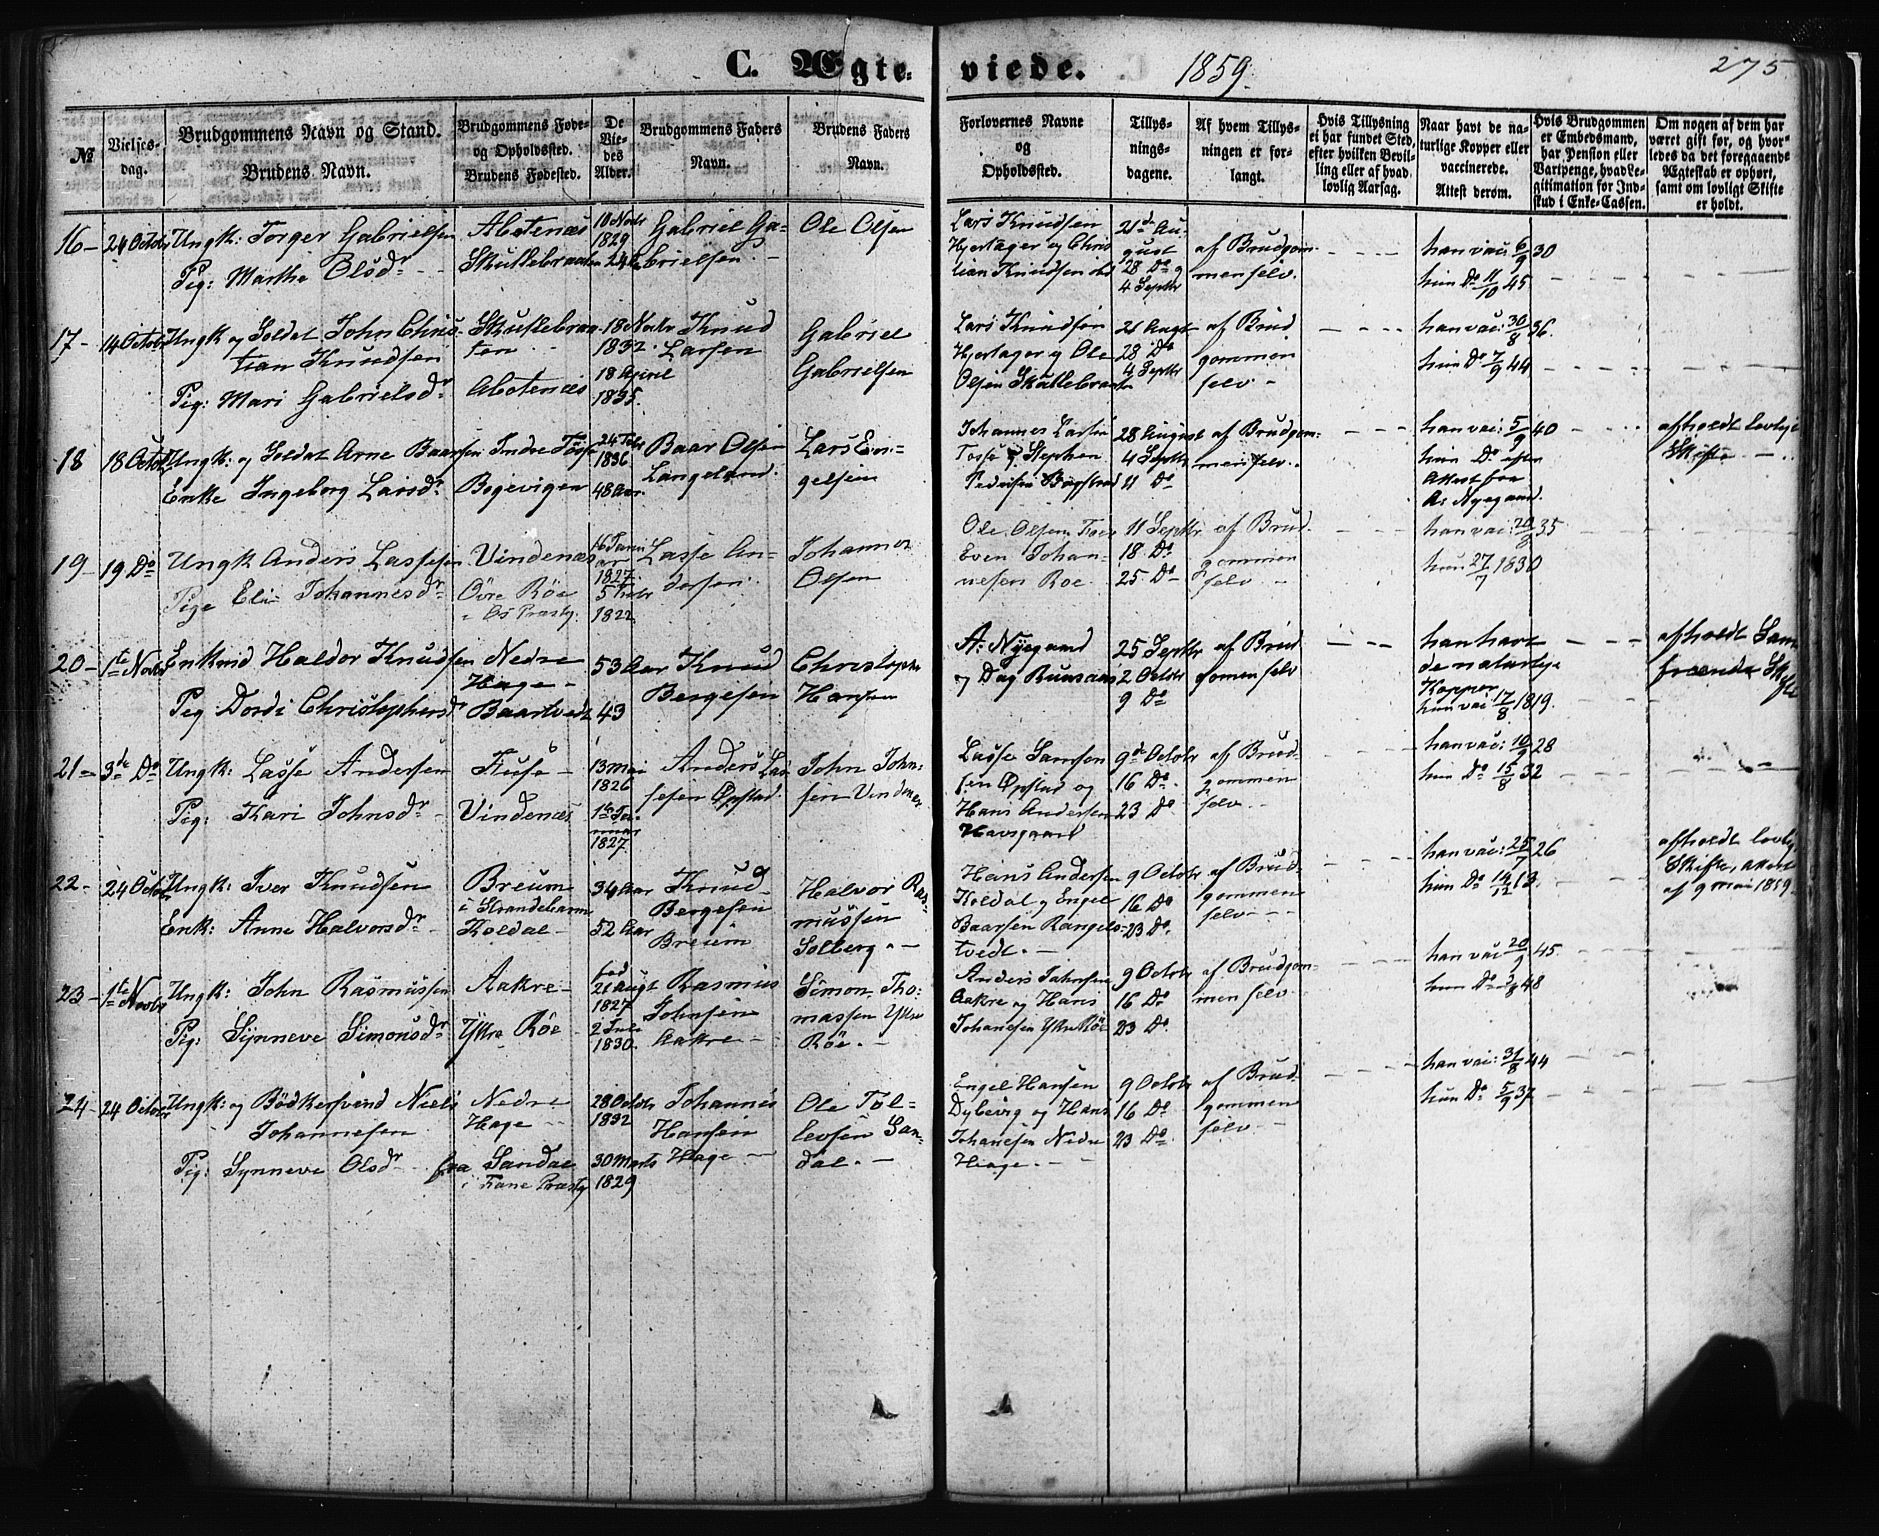 C. Ægte-viede. 1859. 275
№
Vielses-dag.
Brudgommens Navn og Stand.
Brudens Navn.
Brudgommens Føde- og Opholdssted.
Brudens Fødested.
De Viedes Alder.
Brudgommens Faders Navn.
Brudens Faders Navn.
Forlovernes Navne og Opholdssted.
Tillysningsdagene.
Af hvem Tillysningen er forlangt.
Hvis Tillysning ei har fundet Sted, efter hvilken Bevilling eller af hvad lovlig Aarsag.
Naar havt de naturlige Kopper eller vaccinerede.
Attest derom.
Hvis Brudgommen er Embedsmand, har Pension eller Vartpenge, hvad Legitimation for Indskud i Enke-Cassen.
Om nogen af dem har været gift før, og hvorledes da det foregaaende Ægteskab er ophørt, samt om lovligt Skifte er holdt.
16 - 24 Octobr Ungk: Torger Gabrielsen Abotenæs 1829 Gabriel Ga- Ole Olsen Lars Knudsen 21de Au-
Pig: Marthe Olsdr Skullebraaten brielsen Hjertager og Chris gust af Brudgom- han vac: 6/9 30
tian Knudsen 28 Do og men selv. hun Do 11/10 45
4 Septbr
17 - 14 Octobr Ungk og Soldat John Chris- Skullebraa- 18 Novbr Knud Gabriel Lars Knudsen 21 Augt af Brud han vac: 30/8 36
tian Knudsen ten 1832 Larsen Gabrielsen Hjertager og Ole 28 Do gommen hun Do 7/9 44
Pig: Mari Gabrielsdr Abotenæs 18 April 1835. Olsen Skullebraaten 4 Septbr selv
18 18 Octobr Ungk: og Soldat Arne Baarsen Indre 1836 Baar Olsen Lars En- Johannes Larsen 28 August af Brudgom- han vac: 5/9 40 afholdt lovlige
Enke Ingeborg Larsdr Bogevigen 48 Aar. Langeland. gelsen Stephen 4 Septbr men selv. hun Do efter Skifte
Pedersen 11 Do Attest fra
A: Nyegaard.
19 - 19 Do Ungk Anders Lassesen Vindenæs 1827 Lasse An- Johannes Ole Olsen 11 Septbr af Brud- han vac: 35
Pige Eli Johannesdr Øvre Röe dersen. Olsen Even Johan- 18 Do gommen hun 27/7 1830
i Os Præstg. 1822 nesen Roe 25 Do selv
20 - 1te Novbr Enkmd Haldor Knudsen Nedre 53 Aar Knud Christopher A: Nyegaard 25 Septbr af Brud han havt afholdt Sam
Hage Bergesen Hansen og Dag 2 Octobr gomen selv de naturlige fraende Skifte
Pig Dordi Christophersdr Baartvedt 43 9 Do Kopper
hun vac 17/8 1819.
21 - 3de Do Ungk: Lasse Andersen Fuse 13 Mai Anders Las- John John- Lasse Samson 9de Octobr af Brud- han vac: 10/9 28
1826 sesen Opstad. sen Vindenes sen Opstad og 16 Do gommen hun Do 15/8 32
Pig: Kari Johnsdr Vindenæs 1827. Hans Andersen 23 Do selv
Havsgaard
22 - 24 Octobr Ungk: Iver Knudsen Breum 34 Aar Knud Halvor Ras- Hans Andersen 9 Octobr af Brud- han vac: 25/7 26 afholdt lovlig
i Strandebarm Bergesen mussen Koldal og Engel 16 Do gommen hun Do 14/12 13. Skifte,
Enk: Anne Halvorsdr Koldal 52 Aar Breum Solberg. Baarsen Rangels- 23 Do. selv af 9 Mai 1859
tvedt.
23 - 1te Novbr Ungk: John Rasmussen Aakre fød 21 Augt Rasmus Simon Tho- Anders Johnsen 9 Octobr af Brudgom- han vac 20/9 45.
1827 Johnsen massen Ytre Aakre og Hans 16 Do men selv. hun Do 48
Pig: Synneve Simonsdr Ytre Röe 1830. Aakre Röe. Johanesen Ytre Röe 23 Do.
24 - 24 Octobr Ungk: og Bödkersvend Niels Nedre 28 Octobr Johannes Ole Tol- Engel Hansen 9 Octobr af Brud- han vac: 31/8 44
Johannesen Hage 1832 Hansen levsen San- Dybevig og Hans 16 Do gommen hun Do 5/9 37
Pig: Synneve Olsdr fra Sandal 30 Marts Hage dal. Johanesen Nedre 23 Do selv
i Fane Præstg 1829 Hage.